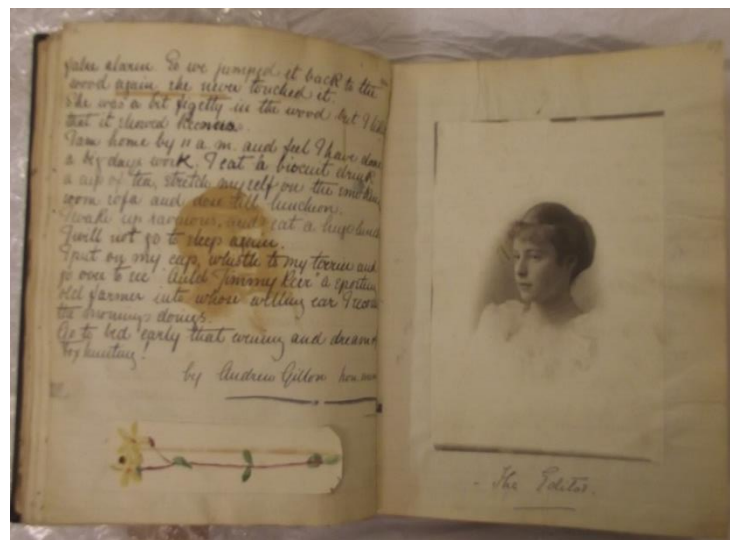 false alarm. So we jumped it back to the
wood again she never touched it.
She was a bit figetty in the wood but I
that it showed
I am home by 11 a.m. and feel I have done
a big days work. I eat a biscuit drink
a cup of tea, stretch myself on the smoking
room sofa and dose till luncheon.
I wake up ravenous, and eat a huge lunch
I will not go to sleep again.
I put on my cap, whistle to my terrier and
go over to see "Auld Jimmy a sporting
old farmer into whose willing ear I
the mornings doings.
Go to bed early that evening and dream
fox hunting!
by Andrew Gillon hon.
The Editor.